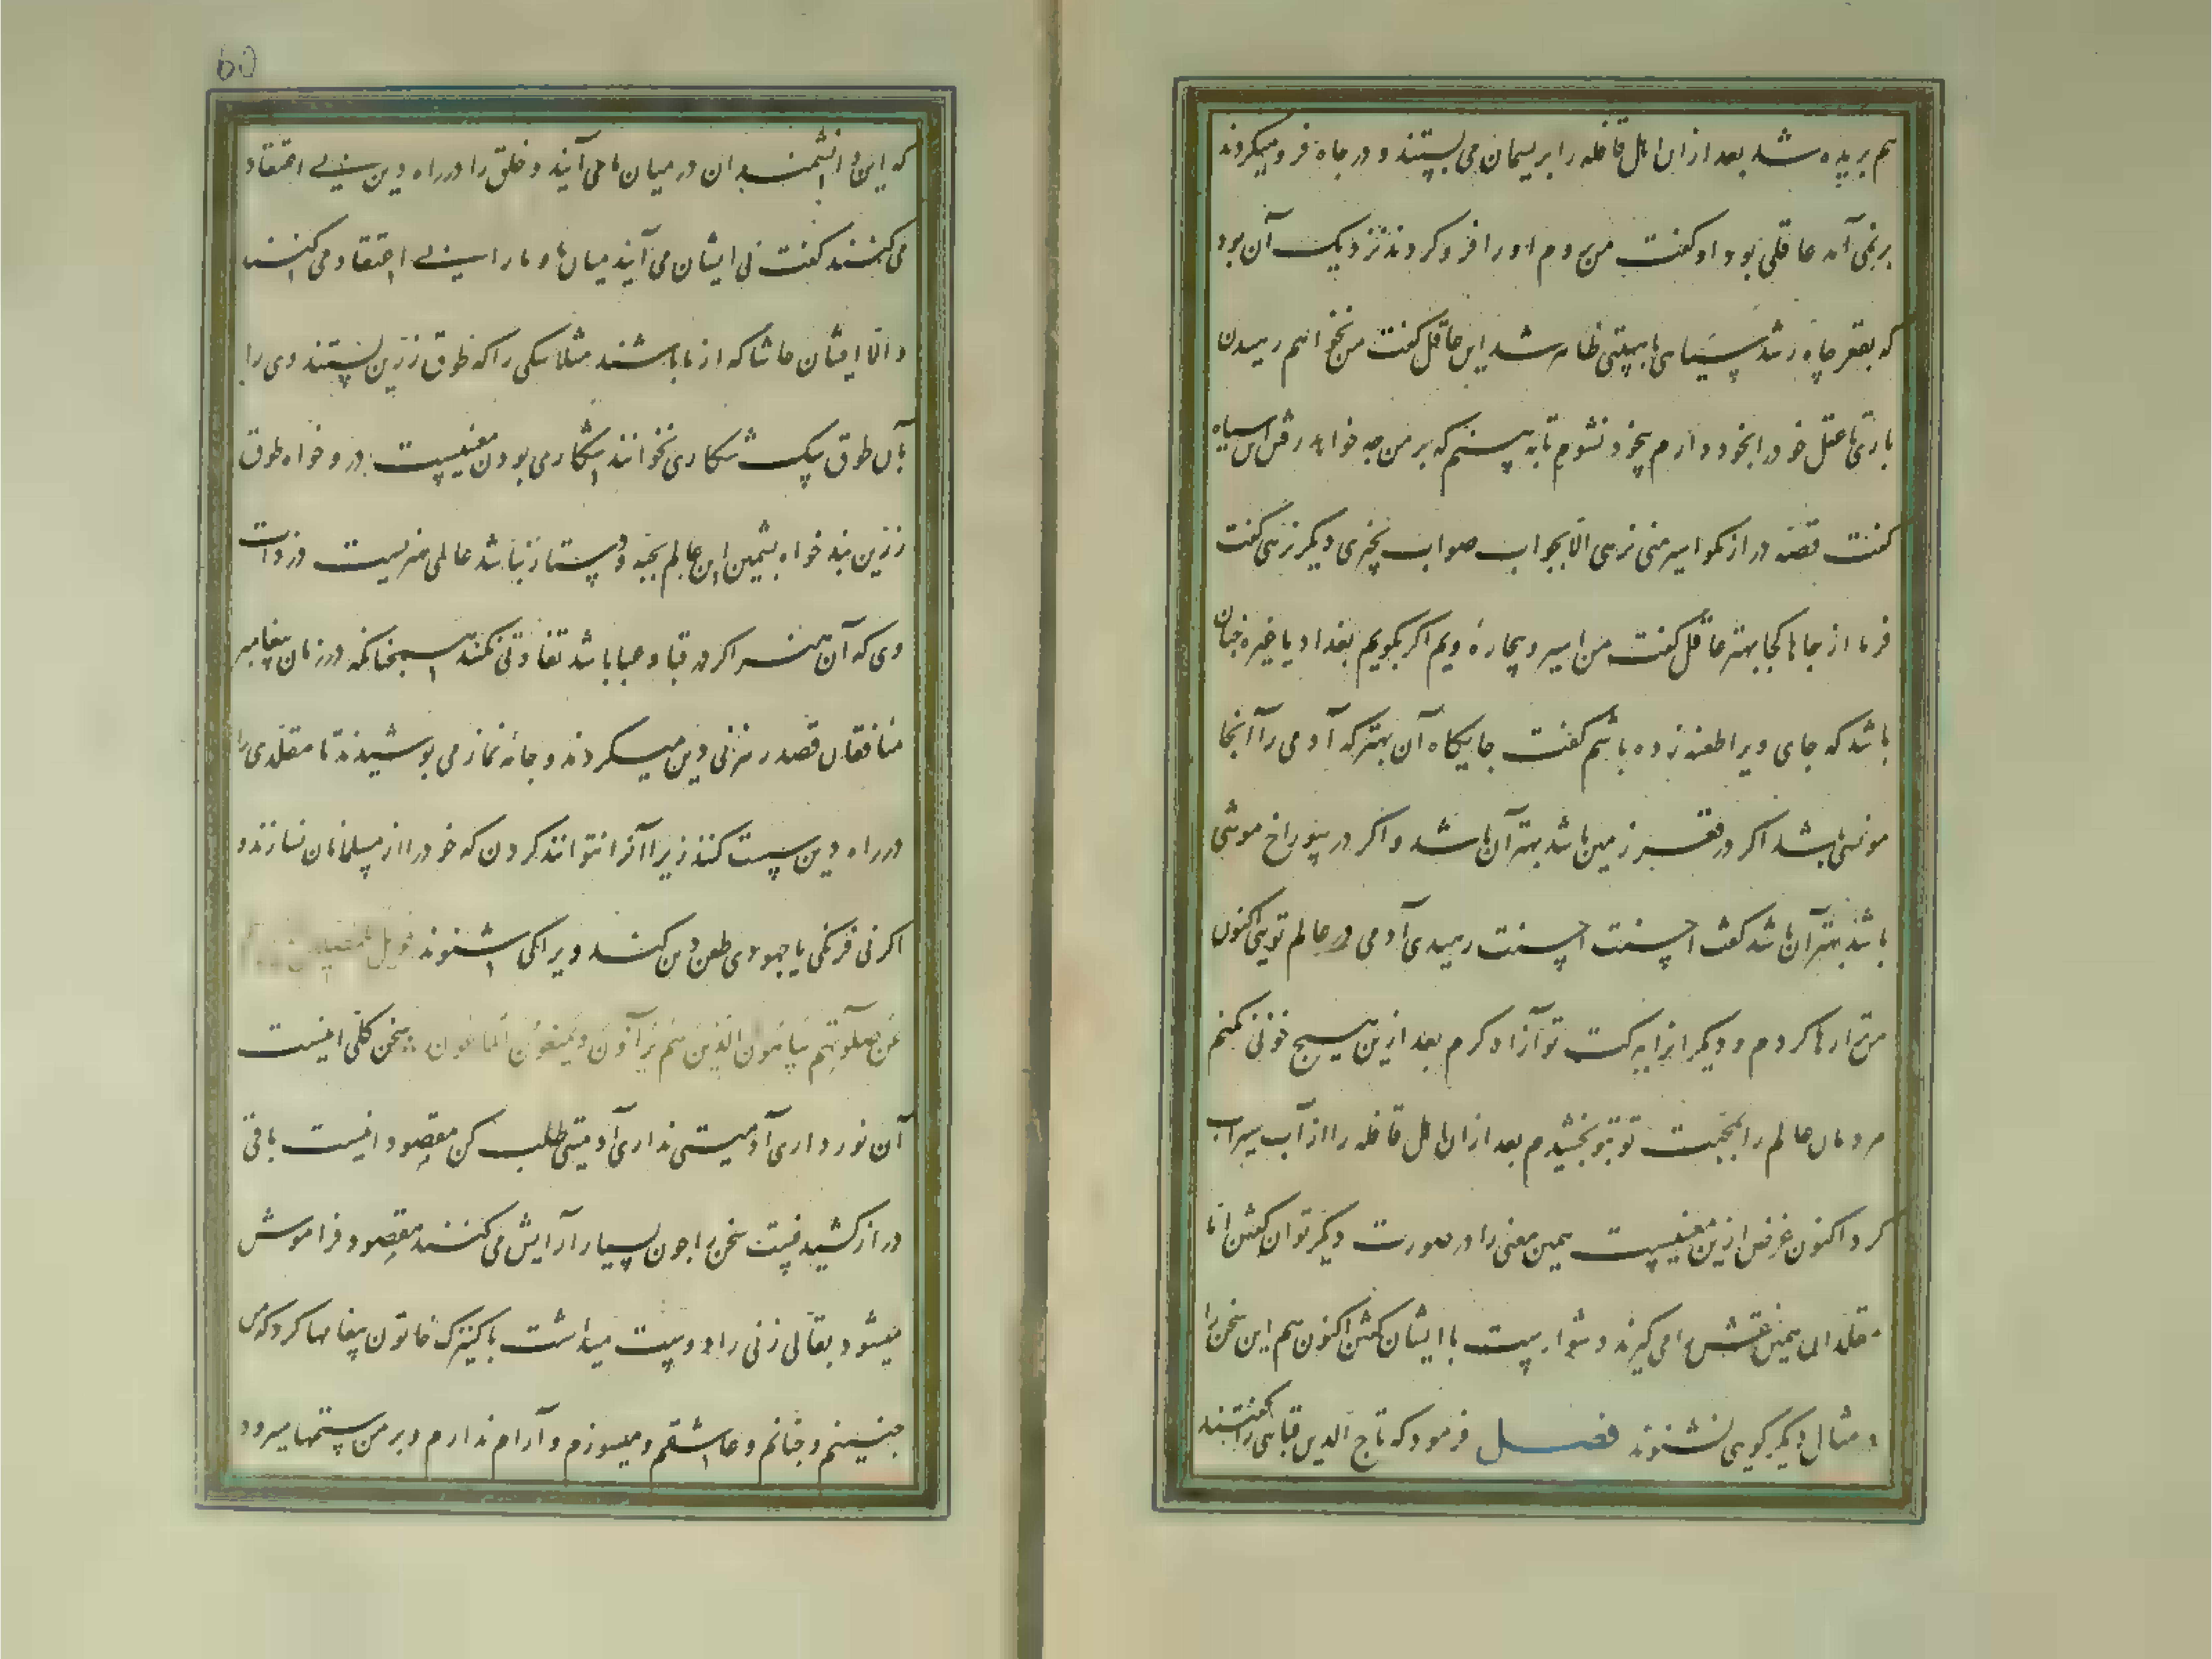 هم بریده شد بعد از ان اهل قافله را بریسمان می بستند و در جاه فرو میکردند
برنمی آمد عاقلی بود او کفت من بروم او را فرو کردند نزدیک آن بود
که بقعر جاه رسد سیاهی باهیبتی ظاهر شد این عاقل کفت من نخواهم رهیدن
باری تا عقل خود را بخود دارم بیخود نشوم تا به بینم که بر من جه خواهد رفتن این سیاه
کفت قصه دراز مکو اسیر منی نرهی الا بجواب صواب بچیزی دیکر نرهی کفت
فرما از جاها کجا بهتر عاقل کفت من اسیر و بیچاره ویم اکر بکویم بغداد یا غیره جنان
باشد که جای ویرا طعنه زده باشم کفت جایکاه آن بهتر که آدمی را آنجا
مونسی باشد اکر در قعر زمین باشد بهتر آن باشد و اکر در سوراخ موشی
باشد بهتر آن باشد کفت احسنت احسنت رهیدی آدمی در عالم توئی اکنون
من ترا رها کردم و دیکرانرا به برکت تو آزاد کردم بعد ازین هیج خونی نکنم
مردمان عالم را بمحبت تو بتو بخشیدم بعد از ان اهل قافله را از آب سیراب
کرد اکنون غرض ازین معنیست همین معنی را در صورت دیکر توان کفتن الا
مقلدان همین نقش را می کیرند دشوارست با ایشان کفتن اکنون هم این سخن را
در مثال دیکر کوئی نشنوند فصل فرمود که تاج الدین قبائی را کفتند
که این دانشمندان در میان ما می آیند و خلق را در راه دین بی اعتقاد
می کنند کفت نی ایشان می آیند میان ما و ما را بی اعتقاد می کنند
و الا ایشان حاشا که از ما باشند مثلا سکی را که طوق زرین بستند وی را
بآن طوق سک شکاری نخوانند شکاری بودن معنیست در و خواه طوق
زرین بند خواه پشمین این عالم بجبه و دستار نباشد عالمی هنریست در ذات
وی که آن هنر اکر در قبا و عبا باشد تفاوتی نکند همچنانکه در زمان پیغامبر
منافقان قصد رهزنی دین میکردند و جامه نماز می پوشیدند تا مقلدی را
در راه دین سست کنند زیرا آنرا نتوانند کردن که خود را از مسلمانان نسازند و
اکر نی فرنکی یا جهودی طعن دین کند ویرا کی شنوند فویل للمصلین الذین هم
عن صلوتهم ساهون الذین هم یرآؤن و یمنعون الماعون سخن کلی اینست
آن نور داری آدمیتی نداری آدمیتی طلب کن مقصود اینست باقی
دراز کشیدنیست سخن را جون بسیار آرایش می کنند مقصود فراموش
میشود بقالی زنی را دوست میداشت با کنیزک خاتون پیغامها کرد که من
جنینم و جنانم و عاشقم و میسوزم و آرام ندارم و بر من ستمها میرود